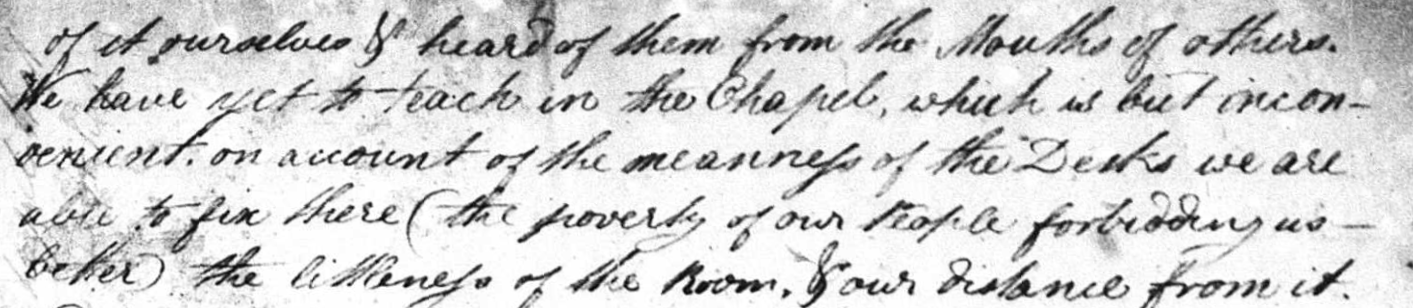 of it ourselves & heard of them from the Mouths of others.
We have yet to teach in the Chapel, which is but incon-
venient. on account of the meanness of the Desks we are
able to fix there (the poverty of our People forbidding us
better) the littleness of the Room, & our distance from it